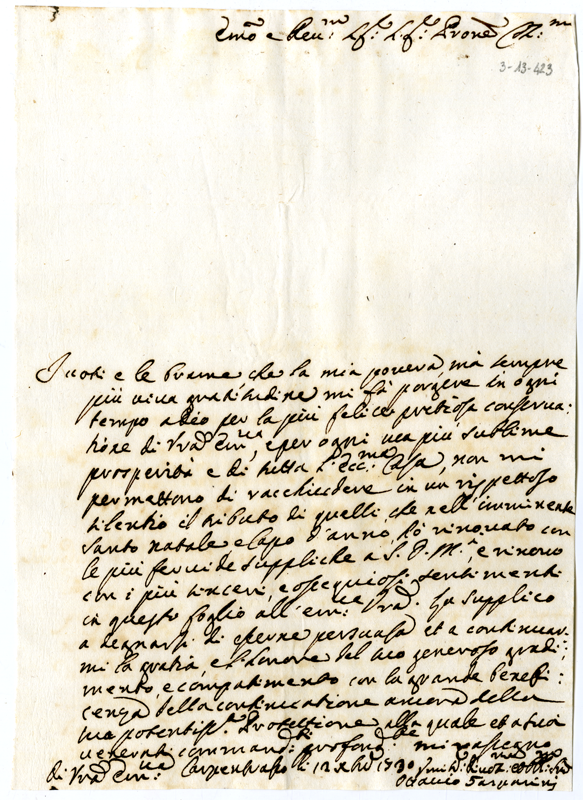 Emo e Reu: Sr: Sr: Prone Col:mo
3-13-423
I uoti e le brame, che la mia pouera, mà sempre
più uiua gratitudine mi fà porgere in ogni
tempo a Dio per la più felice, pretiosa conserua:
tione di Vra Em:za, e per ogni sua più sublime
prosperità e di tutta l'Ecc:ma Casa, non mi
permettono di racchiudere in un rispettoso
silentio il tributo di quelli che nell'imminente
santo natale e capo d'anno hò rinouato con
le più feruide suppliche a S. D. M.a, e rinouo
con i più sinceri, e ossequiosi sentimenti
in questo foglio all'Em:za Vra. La supplico
a degnarsi di esserne persuasa et a continuar:
mi la gratia, e l'honore del suo generoso gradi:
mento, e compatimento con la grande benefi:
cenza della continuatione ancora della
sua potentiss:a Protettione alla quale et a suoi
uenerati commandi profond:te mi rassegno
di Vra Em:za Carpentrasso li 12 Xbre 1730
Ottauio Gasparini